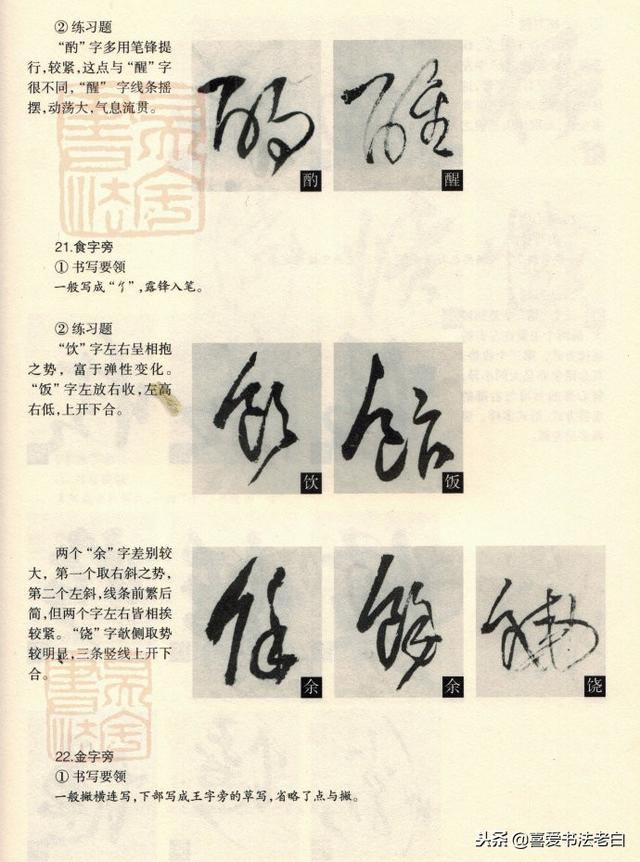 ② 练习题
“酌”字多用笔锋提
行,较紧,这点与“醒”字
很不同,“醒”字线条摇
摆,动荡大,气息流贯。
酌
醒
21.食字旁
① 书写要领
一般写成“饣”,露锋入笔。
② 练习题
“饮”字左右呈相抱
之势，富于弹性变化。
“饭”字左放右收,左高
右低,上开下合。
饮
饭
两个“余”字差别较
大，第一个取右斜之势，
第二个左斜,线条前繁后
简,但两个字左右皆相挨
较紧。“饶”字欹侧取势
较明显,三条竖线上开下
合。
余
余
饶
22.金字旁
① 书写要领
一般撇横连写,下部写成王字旁的草写,省略了点与撇。
头条 @喜爱书法老白